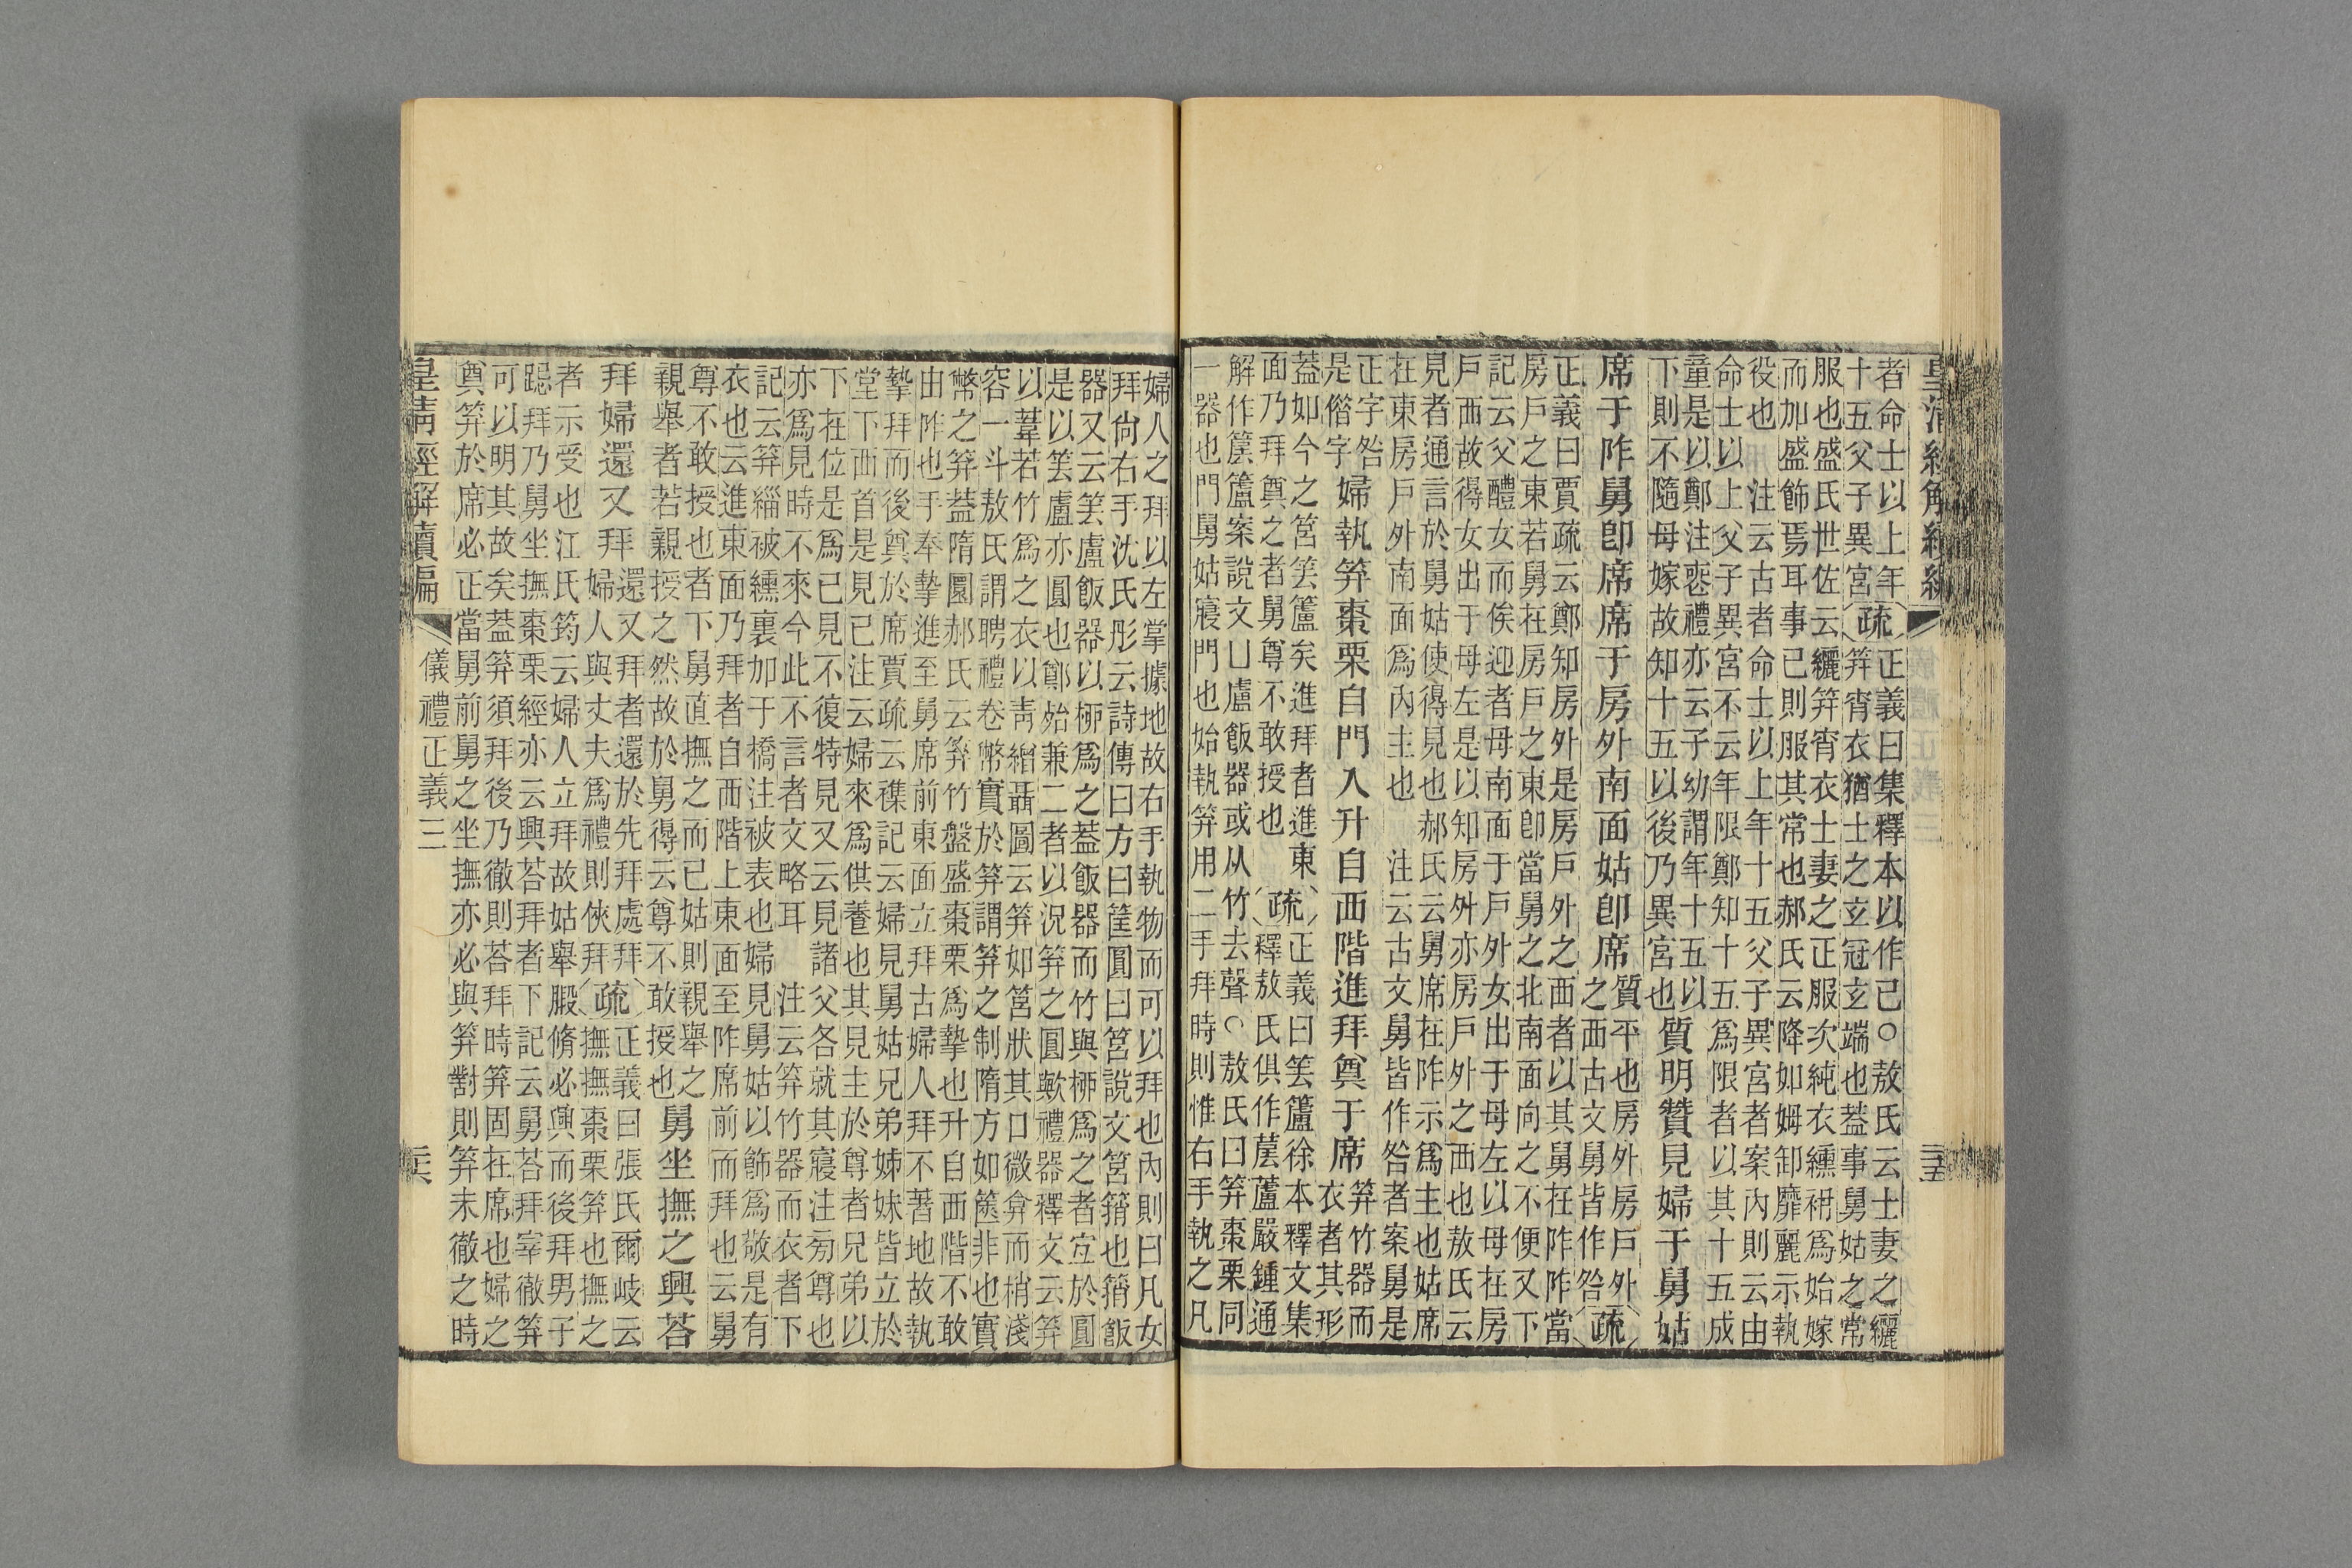 者命士以上年
十五父子異宮
疏
正義曰集釋本以作已○敖氏云士妻之纚
笄宵衣猶士之玄冠玄端也蓋事舅姑之常
服也盛氏世佐云纚笄宵衣士妻之正服次純衣纁袡爲始嫁
而加盛飾焉耳事已則服其常也郝氏云降如姆卸靡麗示執
役也 注云古者命士以上年十五父子異宮者案內則云由
命士以上父子異宮不云年限鄭知十五爲限者以其十五成
童是以鄭注喪禮亦云子幼謂年十五以
下則不隨母嫁故知十五以後乃異宮也
質明贊見婦于舅姑
席于阼舅卽席席于房外南面姑卽席
質平也房外房戶外
之西古文舅皆作咎
疏
正義曰賈疏云鄭知房外是房戶外之西者以其舅在阼阼當
房戶之東若舅在房戶之東卽當舅之北南面向之不便又下
記云父醴女而俟迎者母南面于戶外女出于母左以母在房
戶西故得女出于母左是以知房外亦房戶外之西也敖氏云
見者通言於舅姑使得見也郝氏云舅席在阼示爲主也姑席
在東房戶外南面爲內主也 注云古文舅皆作咎者案舅是
正字咎
是偕字
婦執笲棗栗自門入升自西階進拜奠于席
笲竹器而
衣者其形
蓋如今之筥䇲籚矣進拜者進東
面乃拜奠之者舅尊不敢授也
疏
正義曰䇲籚徐本釋文集
釋敖氏俱作蘆嚴鍾通
解作籚案說文凵盧飯器或从竹去聲○敖氏曰笲棗栗同
一器也門舅姑寢門也始執笲用二手拜時則惟右手執之凡
婦人之拜以左掌據地故右手執物而可以拜也內則曰凡女
拜尙右手沈氏彤云詩傳曰方曰筐圓曰筥說文筥䈰也䈰飯
器又云䇲盧飯器以柳爲之蓋飯器而竹與柳爲之者宜於圓
是以䇲盧亦圓也鄭始兼二者以況笲之圓歟禮器釋文云笲
以葦若竹爲之衣以靑繒聶圖云笲如筥狀其口微弇而梢淺
容一斗敖氏謂聘禮卷幣實於笲謂笲之制隋方如篋非也實
幣之笲蓋隋圜郝氏云笲竹盤盛棗栗爲摯也升自西階不敢
由阼也于奉摯進至舅席前東面立拜古婦人拜不著地故執
摯拜而後奠於席賈疏云襍記云婦見舅姑兄弟姊妹皆立於
堂下西首是見已注云婦來爲供養也其見主於尊者兄弟以
下在位是爲已見不復特見又云見諸父各就其寢注旁尊也
亦爲見時不來今此不言者文略耳 注云笲竹器而衣者下
記云笲緇被纁裏加于橋注被表也婦見舅姑以飾爲敬是有
衣也云進東面乃拜者自西階上東面至阼席前而拜也云舅
尊不敢授也者下舅直撫之而已姑則親舉之
親舉者若親授之然故於舅得云尊不敢授也
舅坐撫之興荅
拜婦還又拜
還又拜者還於先拜處拜
婦人與丈夫爲禮則俠拜
疏
正義曰張氏爾岐云
撫撫棗栗笲也撫之
者示受也江氏筠云婦人立拜故姑舉腶脩必興而後拜男子
跽拜乃舅坐撫棗栗經亦云興荅拜者下記云舅荅拜宰徹笲
可以明其故矣蓋笲須拜後乃徹則荅拜時笲固在席也婦之
奠笲於席必正當舅前舅之坐撫亦必與笲對則笲未徹之時
皇淸經解續編 儀禮正義三